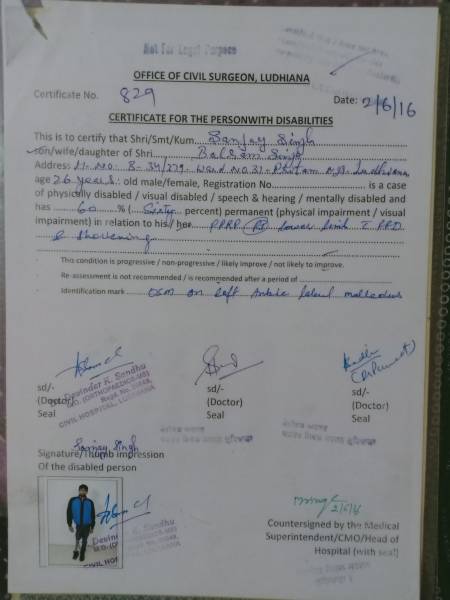 Not For Legal Purpose
OFFICE OF CIVIL SURGEON, LUDHIANA
Certificate No. 829
Date: 2/6/16
CERTIFICATE FOR THE PERSONWITH DISABILITIES
This is to certify that Shri/Smt/Kum Sanjay Singh
son/wife/daughter of Shri Balram Singh
Address H. No. B-34/279 Ward No. 31- Ludhiana
age 26 years old male/female, Registration No. is a case
of physically disabled / visual disabled / speech & hearing / mentally disabled and
has 60 % ( Sixty percent) permanent (physical impairment / visual
impairment) in relation to his / her PPRP lower limb PPD
& shortening
This condition is progressive / non-progressive / likely improve / not likely to improve.
Re-assessment is not recommended / is recommended after a period of
Identification mark OSM on left Ankle malleolus
sd/- sd/- sd/-
(Doctor) (Doctor) (Doctor)
Seal Seal Seal
Devinder K. Sandhu
M.D. (ORTHOPAEDICS-MS)
CIVIL HOSPITAL, LUDHIANA
Sanjay Singh
Signature/Thumb impression
Of the disabled person
2/6/16
Countersigned by the Medical
Superintendent/CMO/Head of
Hospital (with seal)